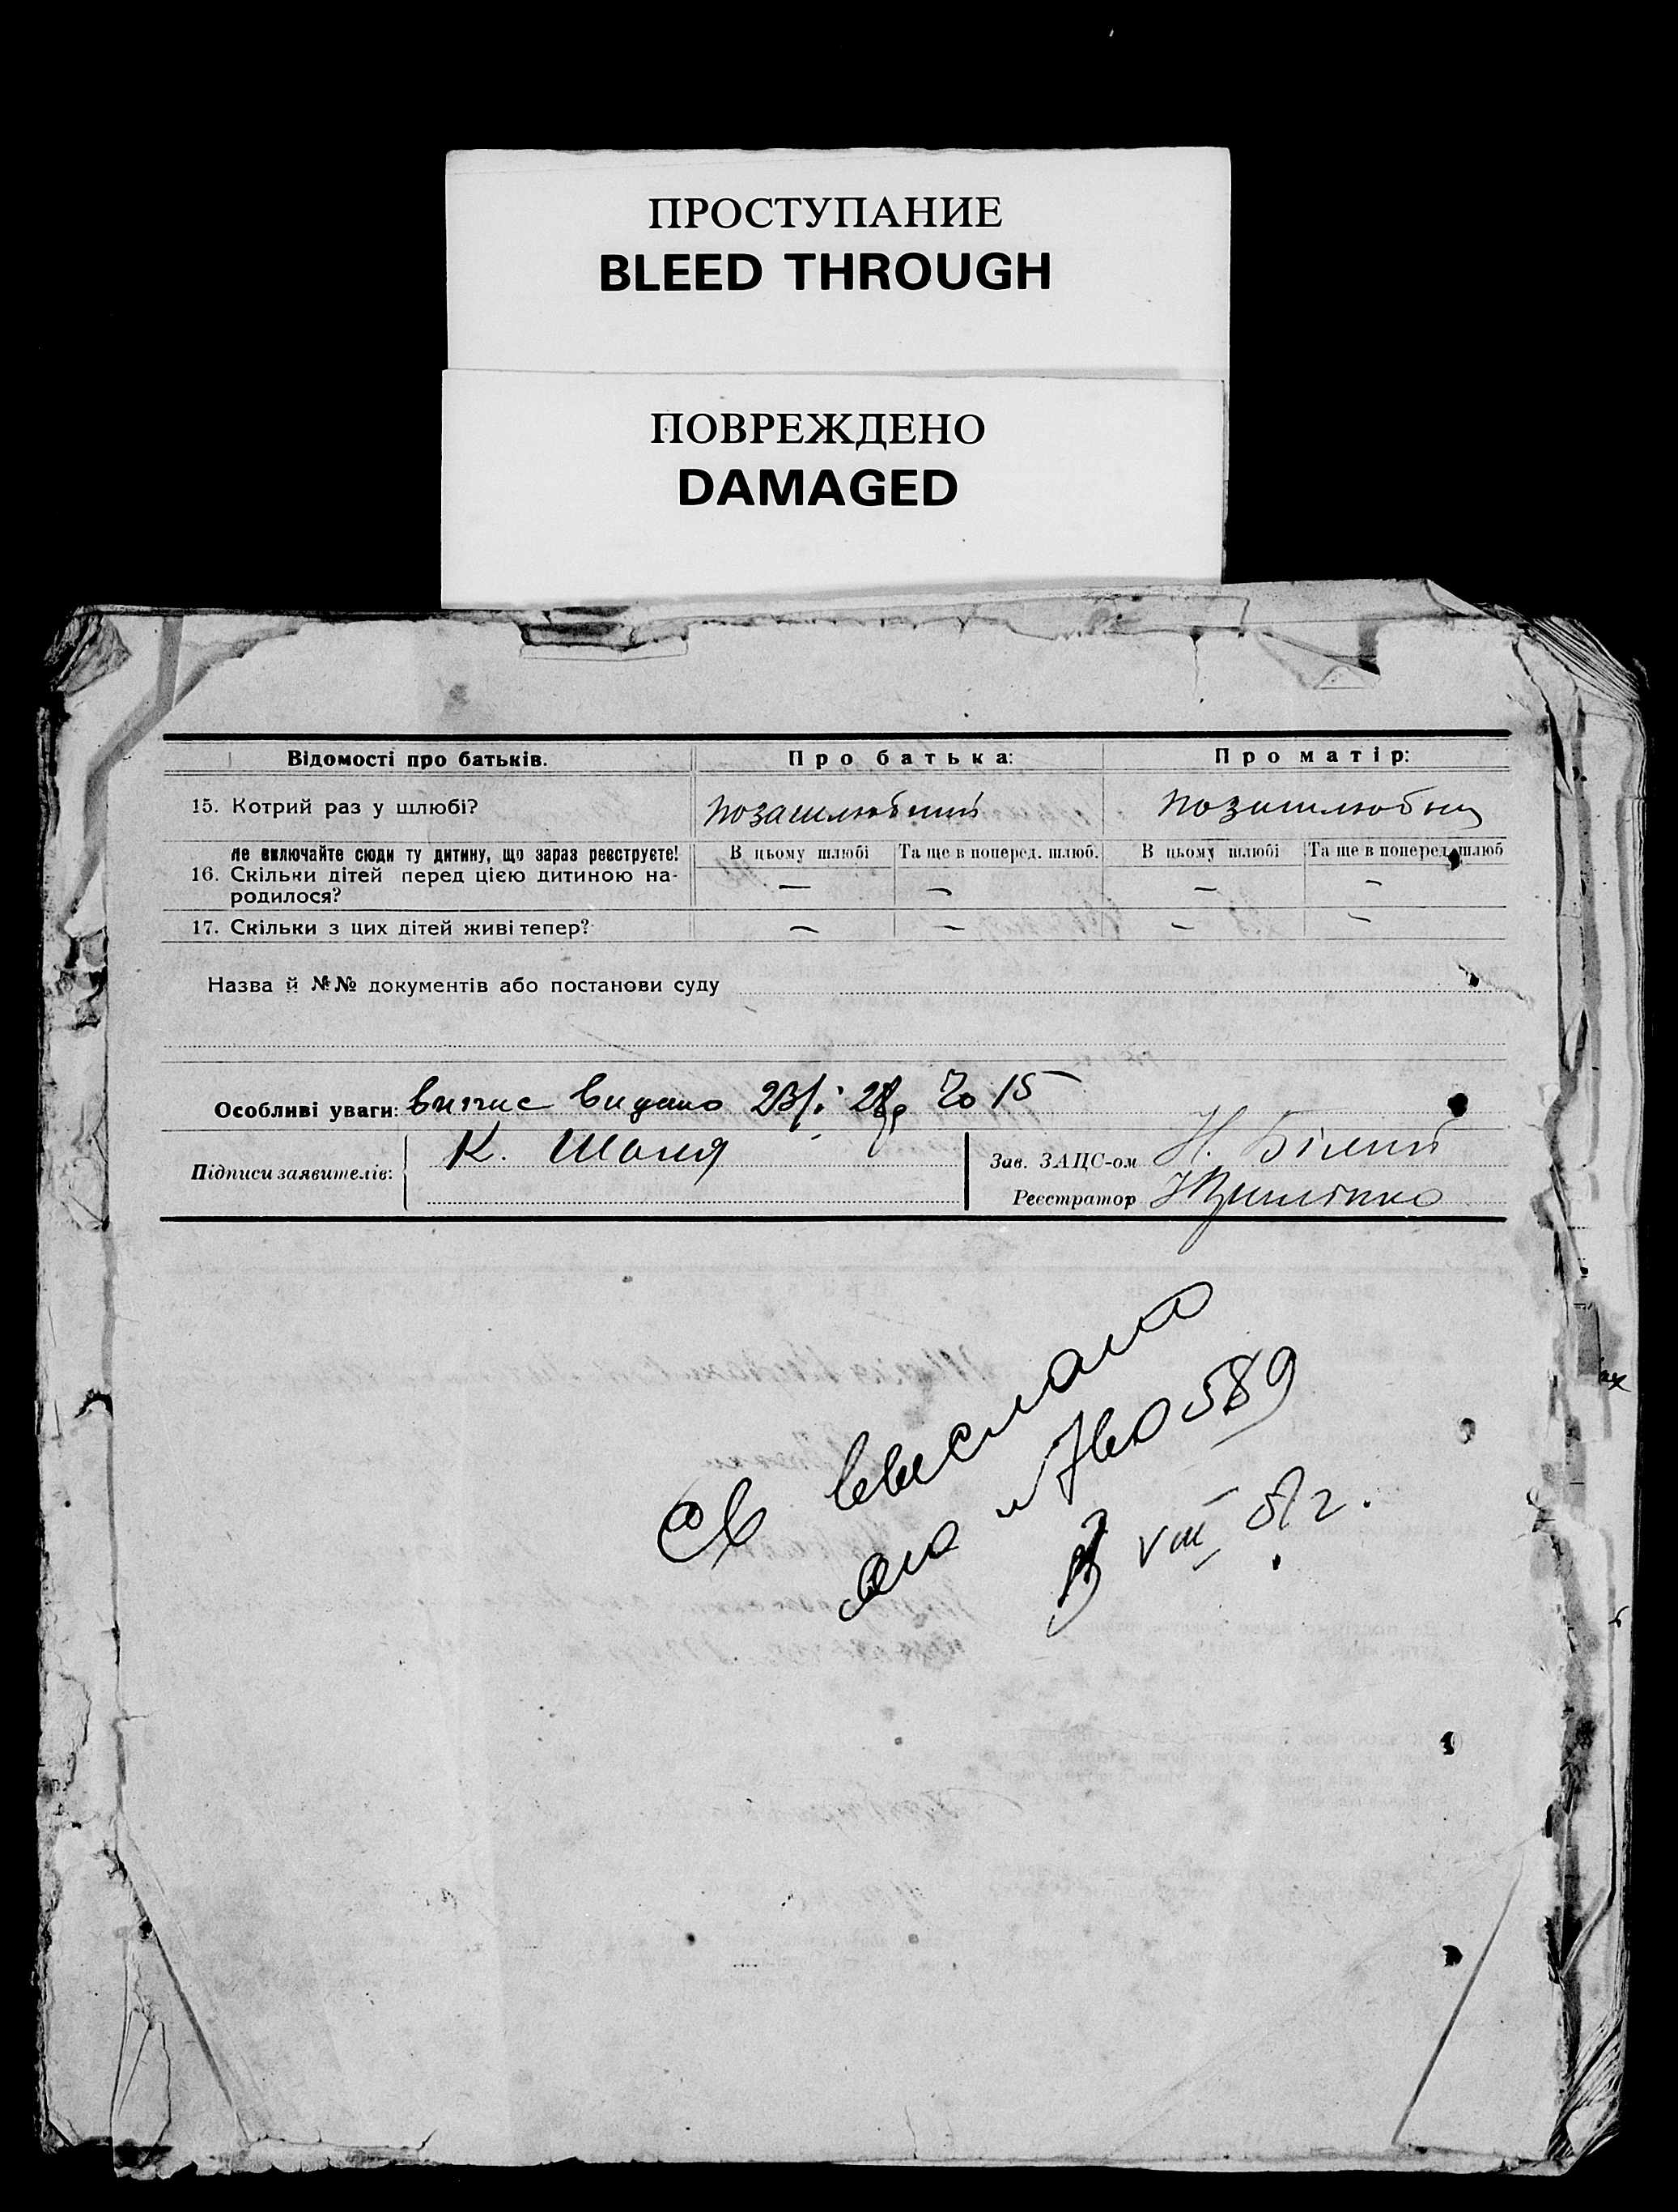 ПРОСТУПАНИЕ
BLEED THROUGH
ПОВРЕЖДЕНО
DAMAGED
Відомості про батьків. Про батька: Про матір:
15. Котрий раз у шлюбі? позашлюбний позашлюбна
Не включайте сюди ту дитину, що зараз реєструєте! В цьому шлюбі Та ще в поперед. шлюб. В цьому шлюбі Та ще в поперед. шлюб
16. Скільки дітей перед цією дитиною на-
родилося? — — — —
17. Скільки з цих дітей живі тепер? — — — —
Назва й №№ документів або постанови суду
Особливі уваги: витис видано 15
Підписи заявителів: К. Шаля Зав. ЗАЦС-ом Н. Білий
Реєстратор
Св выслано
589
VIII